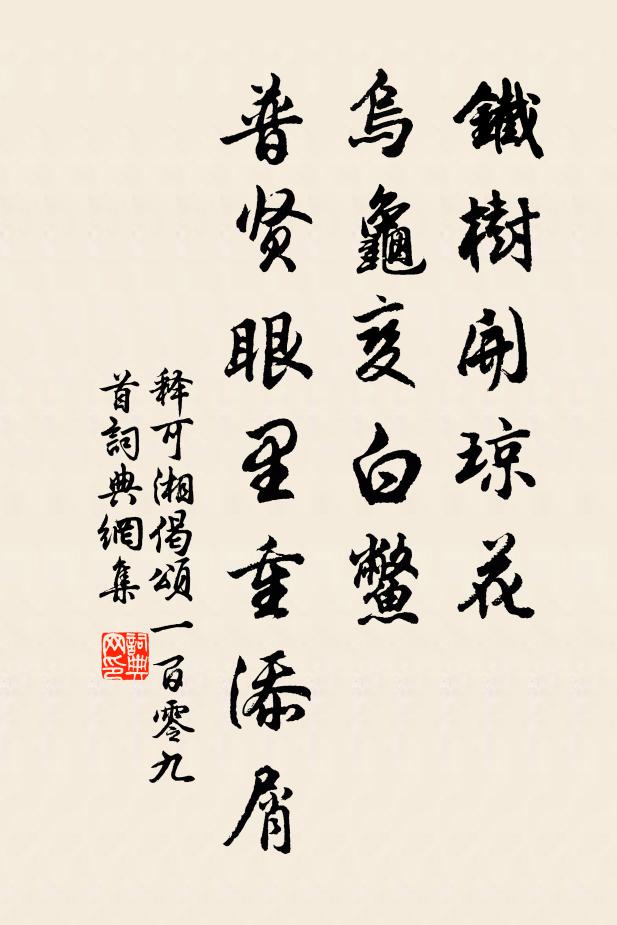 鐵樹開琼花
烏龜变白鱉
普贤眼里重添屑
释可湘偈頌一百零九
首詞典網集
詞典
网印